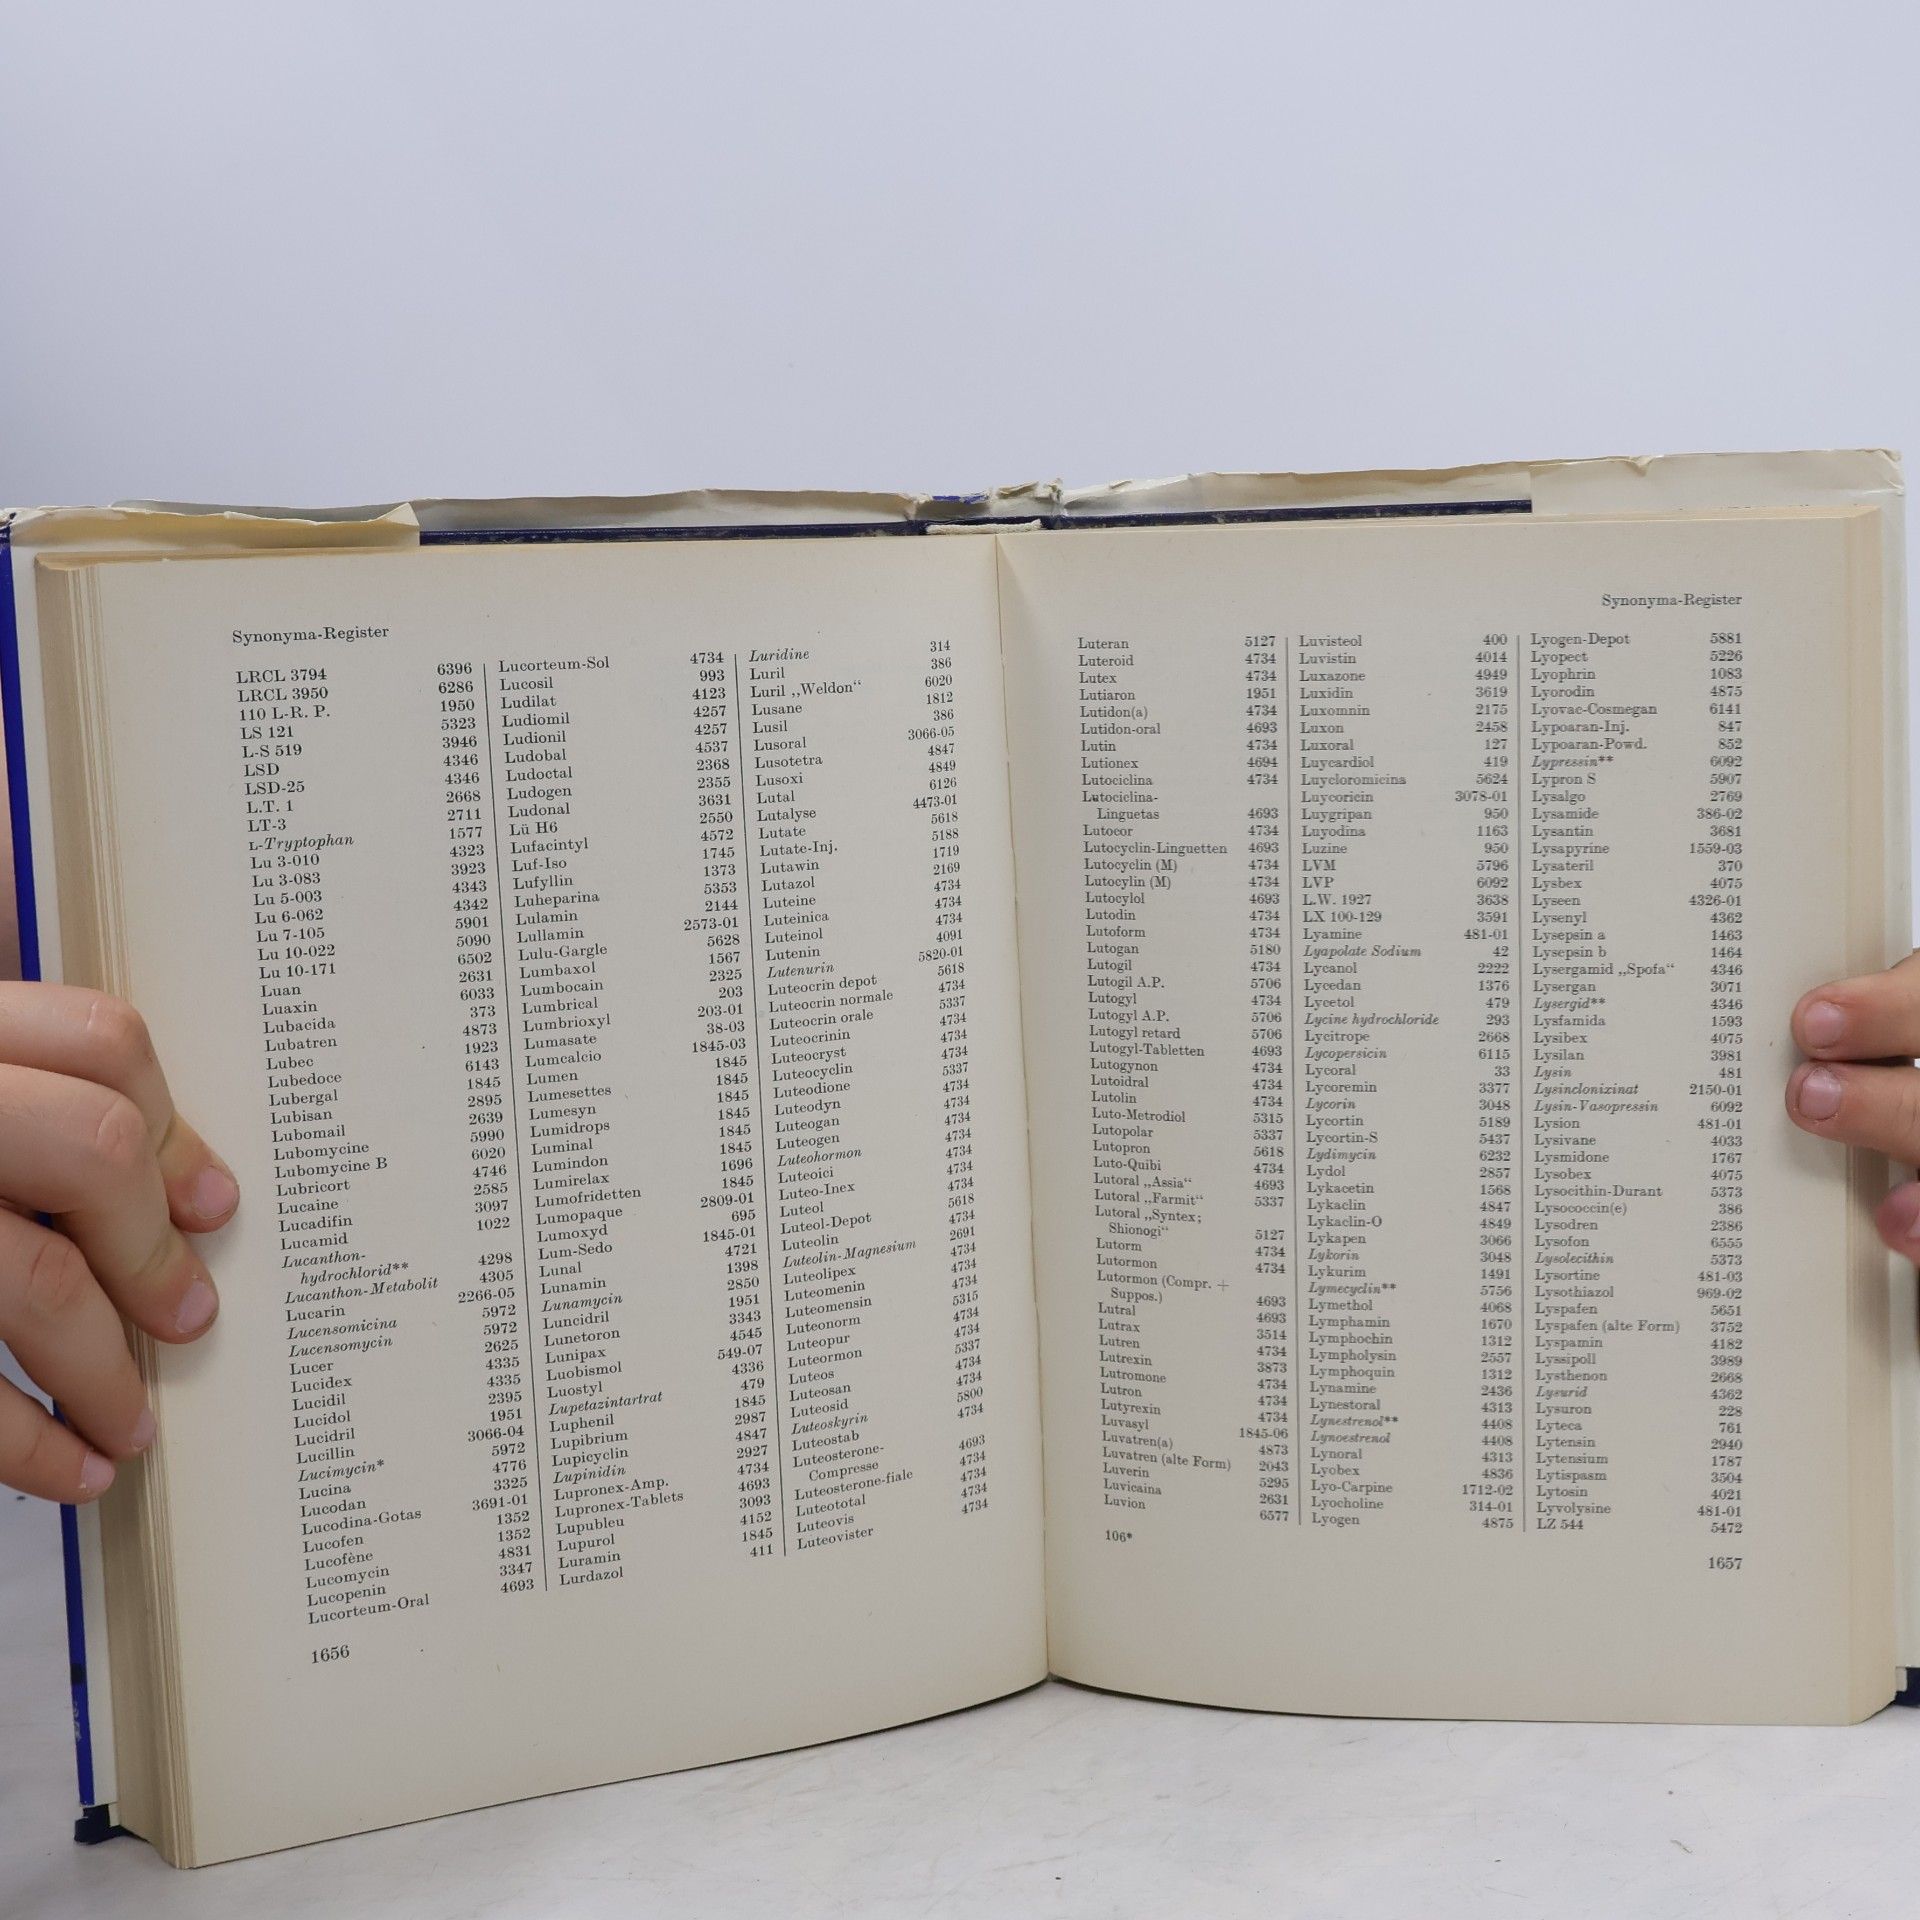 Synonyma-Register
LRCL 3794 6396
LRCL 3950 6286
110 L-R. P. 1950
LS 121 5323
L-S 519 3946
LSD 4346
LSD-25 4346
L.T. 1 2668
LT-3 2711
L-Tryptophan 1577
Lu 3-010 4323
Lu 3-083 3923
Lu 5-003 4343
Lu 6-062 4342
Lu 7-105 5901
Lu 10-022 5090
Lu 10-171 6502
Luan 2631
Luaxin 6033
Lubacida 373
Lubatren 4873
Lubec 1923
Lubedoce 6143
Lubergal 1845
Lubisan 2895
Lubomail 2639
Lubomycine 5990
Lubomycine B 6020
Lubricort 4746
Lucaine 2585
Lucadifin 3097
Lucamid 1022
Lucanthon-
hydrochlorid** 4298
Lucanthon-Metabolit 4305
Lucarin 2266-05
Lucensomicina 5972
Lucensomycin 5972
Lucer 2625
Lucidex 4335
Lucidil 4335
Lucidol 2395
Lucidril 1951
Lucillin 3066-04
Lucimycin* 5972
Lucina 4776
Lucodan 3325
Lucodina-Gotas 3691-01
Lucofen 1352
Lucofène 1352
Lucomycin 4831
Lucopenin 3347
Lucorteum-Oral 4693
Lucorteum-Sol 4734
Lucosil 993
Ludilat 4123
Ludiomil 4257
Ludionil 4257
Ludobal 4537
Ludoctal 2368
Ludogen 2355
Ludonal 3631
Lü H6 2550
Lufacintyl 4572
Luf-Iso 1745
Lufyllin 1373
Luheparina 5353
Lulamin 2144
Lullamin 2573-01
Lulu-Gargle 5628
Lumbaxol 1567
Lumbocain 2325
Lumbrical 203
Lumbrioxyl 203-01
Lumasate 38-03
Lumcalcio 1845-03
Lumen 1845
Lumesettes 1845
Lumesyn 1845
Lumidrops 1845
Luminal 1845
Lumindon 1845
Lumirelax 1696
Lumofridetten 1845
Lumopaque 2809-01
Lumoxyd 695
Lum-Sedo 1845-01
Lunal 4721
Lunamin 1398
Lunamycin 2850
Luncidril 1951
Lunetoron 3343
Lunipax 4545
Luobismol 549-07
Luostyl 4336
Lupetazintartrat 479
Luphenil 1845
Lupibrium 2987
Lupicyclin 4847
Lupinidin 2927
Lupronex-Amp. 4734
Lupronex-Tablets 4693
Lupubleu 3093
Lupurol 4152
Luramin 1845
Lurdazol 411
Luridine 314
Luril 386
Luril „Weldon“ 6020
Lusane 1812
Lusil 386
Lusoral 3066-05
Lusotetra 4847
Lusoxi 4849
Lutal 6126
Lutalyse 4473-01
Lutate 5618
Lutate-Inj. 5188
Lutawin 1719
Lutazol 2169
Luteine 4734
Luteinica 4734
Luteinol 4734
Lutenin 4091
Lutenurin 5820-01
Luteocrin depot 5618
Luteocrin normale 4734
Luteocrin orale 5337
Luteocrinin 4734
Luteocryst 4734
Luteocyclin 4734
Luteodione 5337
Luteodyn 4734
Luteogan 4734
Luteogen 4734
Luteohormon 4734
Luteoici 4734
Luteo-Inex 4734
Luteol 4734
Luteol-Depot 5618
Luteolin 4734
Luteolin-Magnesium 2691
Luteolipex 4734
Luteomenin 4734
Luteomensin 4734
Luteonorm 5315
Luteopur 4734
Luteormon 4734
Luteos 5337
Luteosan 4734
Luteosid 4734
Luteoskyrin 5800
Luteostab 4734
Luteosterone-
Compresse 4693
Luteosterone-fiale 4734
Luteototal 4734
Luteovis 4734
Luteovister 4734
1656
Synonyma-Register
Luteran 5127
Luteroid 4734
Lutex 4734
Lutiaron 1951
Lutidon(a) 4734
Lutidon-oral 4693
Lutin 4734
Lutionex 4694
Lutociclina 4734
Lutociclina-
Linguetas 4693
Lutocor 4734
Lutocyclin-Linguetten 4693
Lutocyclin (M) 4734
Lutocylin (M) 4734
Lutocylol 4693
Lutodin 4734
Lutoform 4734
Lutogan 5180
Lutogil 4734
Lutogil A.P. 5706
Lutogyl 4734
Lutogyl A.P. 5706
Lutogyl retard 5706
Lutogyl-Tabletten 4693
Lutogynon 4734
Lutoidral 4734
Lutolin 4734
Luto-Metrodiol 5315
Lutopolar 5337
Lutopron 5618
Luto-Quibi 4734
Lutoral „Assia“ 4693
Lutoral „Farmit“ 5337
Lutoral „Syntex;
Shionogi“ 5127
Lutorm 4734
Lutormon 4734
Lutormon (Compr. +
Suppos.) 4693
Lutral 4693
Lutrax 3514
Lutren 4734
Lutrexin 3873
Lutromone 4734
Lutron 4734
Lutyrexin 4734
Luvasyl 1845-06
Luvatren(a) 4873
Luvatren (alte Form) 2043
Luverin 5295
Luvicaina 2631
Luvion 6577
Luvisteol 400
Luvistin 4014
Luxazone 4949
Luxidin 3619
Luxomnin 2175
Luxon 2458
Luxoral 127
Luycardiol 419
Luycloromicina 5624
Luycoricin 3078-01
Luygripan 950
Luyodina 1163
Luzine 950
LVM 5796
LVP 6092
L.W. 1927 3638
LX 100-129 3591
Lyamine 481-01
Lyapolate Sodium 42
Lycanol 2222
Lycedan 1376
Lycetol 479
Lycine hydrochloride 293
Lycitrope 2668
Lycopersicin 6115
Lycoral 33
Lycoremin 3377
Lycorin 3048
Lycortin 5189
Lycortin-S 5437
Lydimycin 6232
Lydol 2857
Lykacetin 1568
Lykaclin 4847
Lykaclin-O 4849
Lykapen 3066
Lykorin 3048
Lykurim 1491
Lymecyclin** 5756
Lymethol 4068
Lymphamin 1670
Lymphochin 1312
Lympholysin 2557
Lymphoquin 1312
Lynamine 2436
Lynestoral 4313
Lynestrenol** 4408
Lynoestrenol 4408
Lynoral 4313
Lyobex 4836
Lyo-Carpine 1712-02
Lyocholine 314-01
Lyogen 4875
Lyogen-Depot 5881
Lyopect 5226
Lyophrin 1083
Lyorodin 4875
Lyovac-Cosmegan 6141
Lypoaran-Inj. 847
Lypoaran-Powd. 852
Lypressin** 6092
Lypron S 5907
Lysalgo 2769
Lysamide 386-02
Lysantin 3681
Lysapyrine 1559-03
Lysateril 370
Lysbex 4075
Lyseen 4326-01
Lysenyl 4362
Lysepsin a 1463
Lysepsin b 1464
Lysergamid „Spofa“ 4346
Lysergan 3071
Lysergid** 4346
Lysfamida 1593
Lysibex 4075
Lysilan 3981
Lysin 481
Lysinclonixinat 2150-01
Lysin-Vasopressin 6092
Lysion 481-01
Lysivane 4033
Lysmidone 1767
Lysobex 4075
Lysocithin-Durant 5373
Lysococcin(e) 386
Lysodren 2386
Lysofon 6555
Lysolecithin 5373
Lysortine 481-03
Lysothiazol 969-02
Lyspafen 5651
Lyspafen (alte Form) 3752
Lyspamin 4182
Lyssipoll 3989
Lysthenon 2668
Lysurid 4362
Lysuron 228
Lyteca 761
Lytensin 2940
Lytensium 1787
Lytispasm 3504
Lytosin 4021
Lyvolysine 481-01
LZ 544 5472
106*
1657